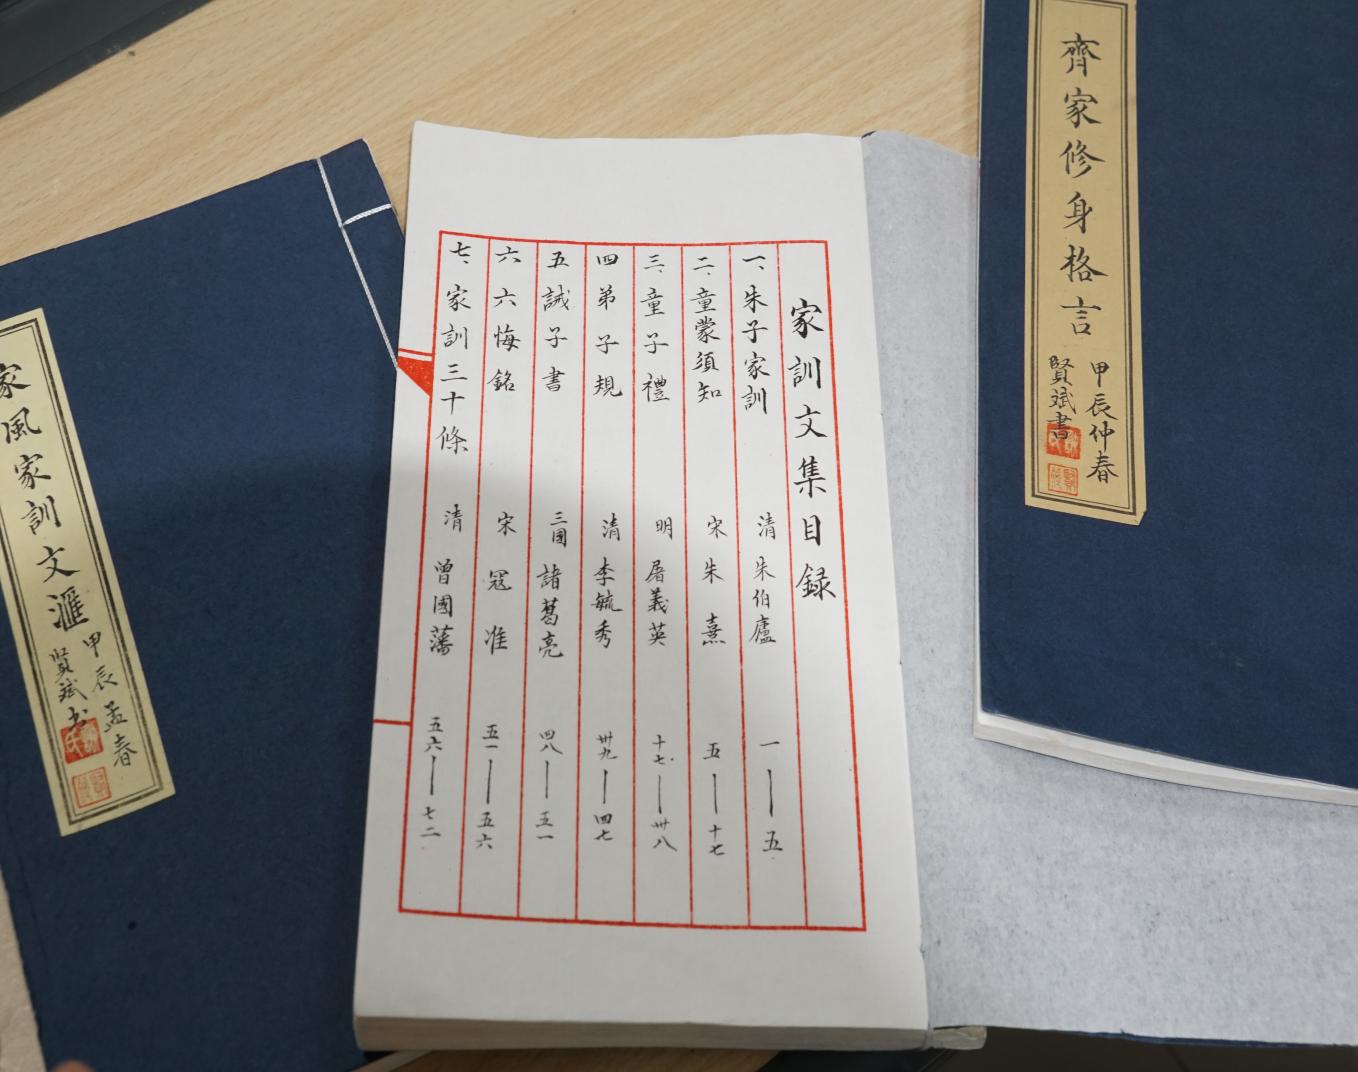 齊家修身格言
甲辰仲春
賢斌書
家訓文集目録
一、朱子家訓 清 朱伯廬 一——五
二、童蒙須知 宋 朱熹 五——十七
三、童子禮 明 屠義英 十七——卅八
四 弟子規 清 李毓秀 卅九——四七
五 誡子書 三國 諸葛亮 四八——五一
六 六悔銘 宋 寇准 五一——五六
七、家訓三十條 清 曾國藩 五六——七二
家風家訓文滙
甲辰孟春
賢斌书